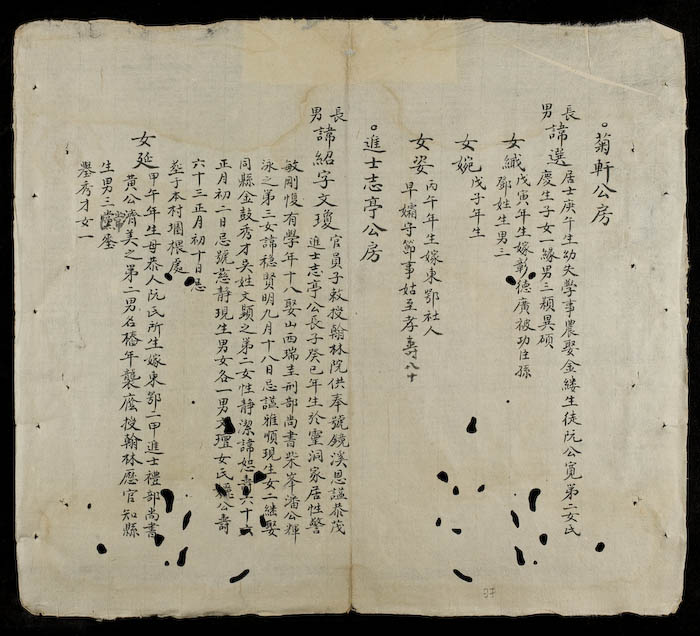 。菊軒公房
長男 諱選 居士庚午生幼失學事農娶金縷生徒阮公寬第二女氏
慶生子女一緣男三穎異碩
女緘 戊寅年生嫁彰德廣被功臣孫
鄧姓生男三
女婉 戊子年生
女姿 丙午年生嫁東鄂社人
早孀守節事姑至孝壽八十
。進士志亭公房
長男 諱紹字文瓊 官員子敕授翰林院供奉號鏡溪恩謚恭茂
進士志亭公長子癸巳年生於靈洞家居性警
敏剛愎有學年十八娶山西瑞圭刑部尚書柴峯潘公輝
泳之第三女諱穩賢明九月十八日忌謚雅順現生女二繼娶
同縣金鼓秀才吳姓文顯之第二女性静潔諱恕壽六十六
正月初二日忌號慈静現生男女各一男文璮女氏公壽
六十三正月初十日忌
塟于本村堌樃處
女延 甲午年生母恭人阮氏所生嫁東鄂一甲進士禮部尚書
黃公濟美之第二男名椿年襲廕授翰林歷官知縣
生男三
舉秀才女一